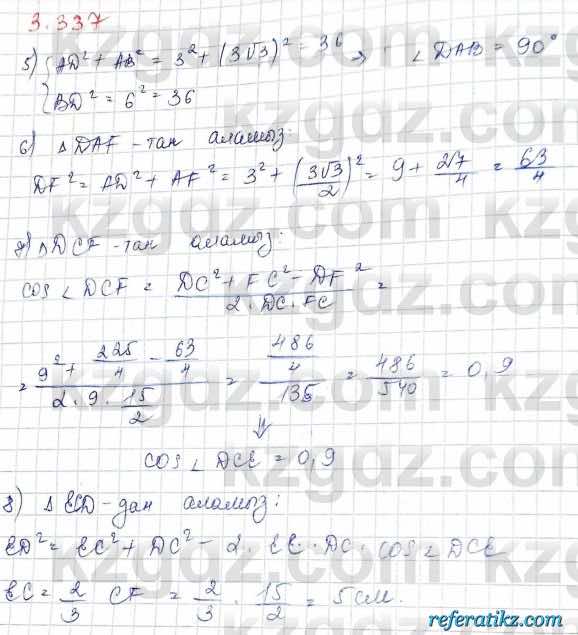 3.337
5) { AD² + AB² = 3² + (3√3)² = 36 ⇒ ∠DAB = 90°
BD² = 6² = 36
6) △DAF-тан аламыз:
DF² = AD² + AF² = 3² + (3√3/2)² = 9 + 27/4 = 63/4
7) △DCF-тан аламыз:
cos∠DCF = (DC² + FC² - DF²)/(2·DC·FC) =
= (9² + 225/4 - 63/4)/(2·9·15/2) = (486/4)/135 = 486/540 = 0,9
⇓
cos∠DCE = 0,9
8) △ECD-дан аламыз:
ED² = EC² + DC² - 2·EC·DC·cos∠DCE
EC = 2/3 CF = 2/3 · 15/2 = 5 см.
kzgdz.com
referatikz.com